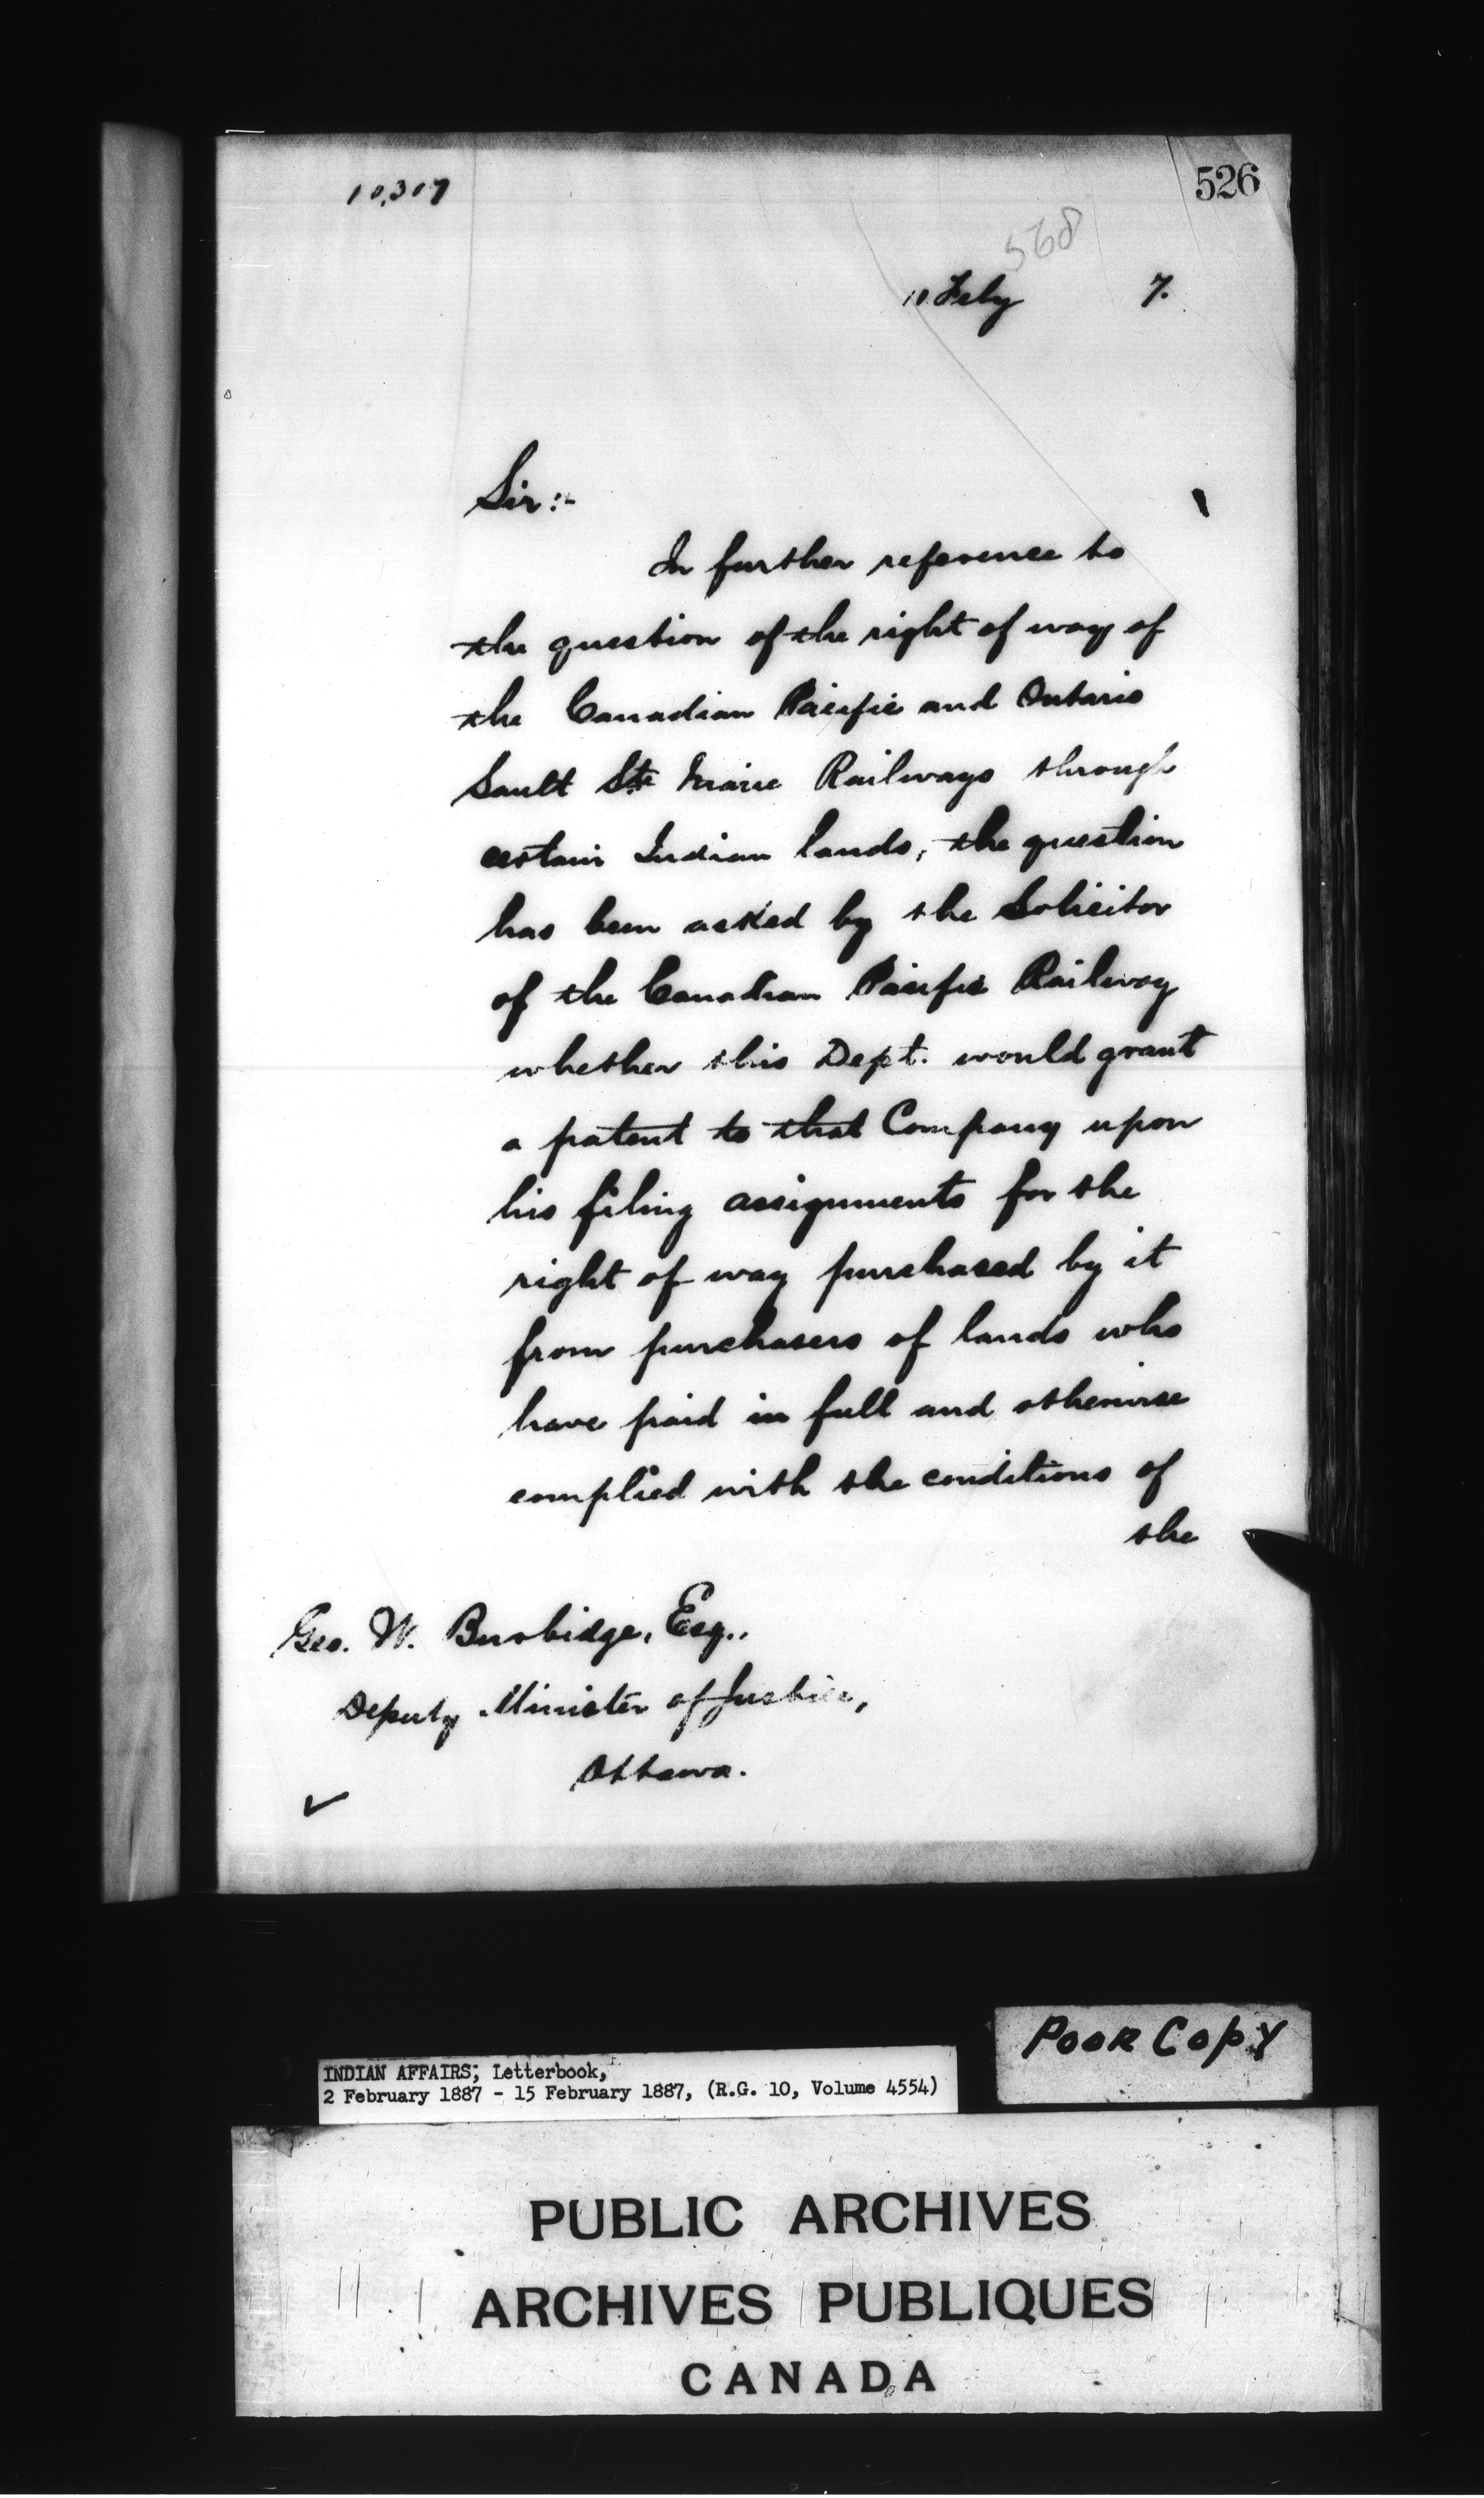 10,317
526
568
10 Feby 7.
Sir:-
In further reference to
the question of the right of way of
the Canadian Pacific and Ontario
Sault Ste Marie Railways through
certain Indian lands, the question
has been asked by the Solicitor
of the Canadian Pacific Railway
whether this Dept. would grant
a patent to that Company upon
his filing assignments for the
right of way purchased by it
from purchasers of lands who
have paid in full and otherwise
complied with the conditions of
the
Geo. W. Burbidge, Esq.,
Deputy Minister of Justice,
Ottawa.
POOR COPY
INDIAN AFFAIRS; Letterbook,
2 February 1887 - 15 February 1887, (R.G. 10, Volume 4554)
PUBLIC ARCHIVES
ARCHIVES PUBLIQUES
CANADA